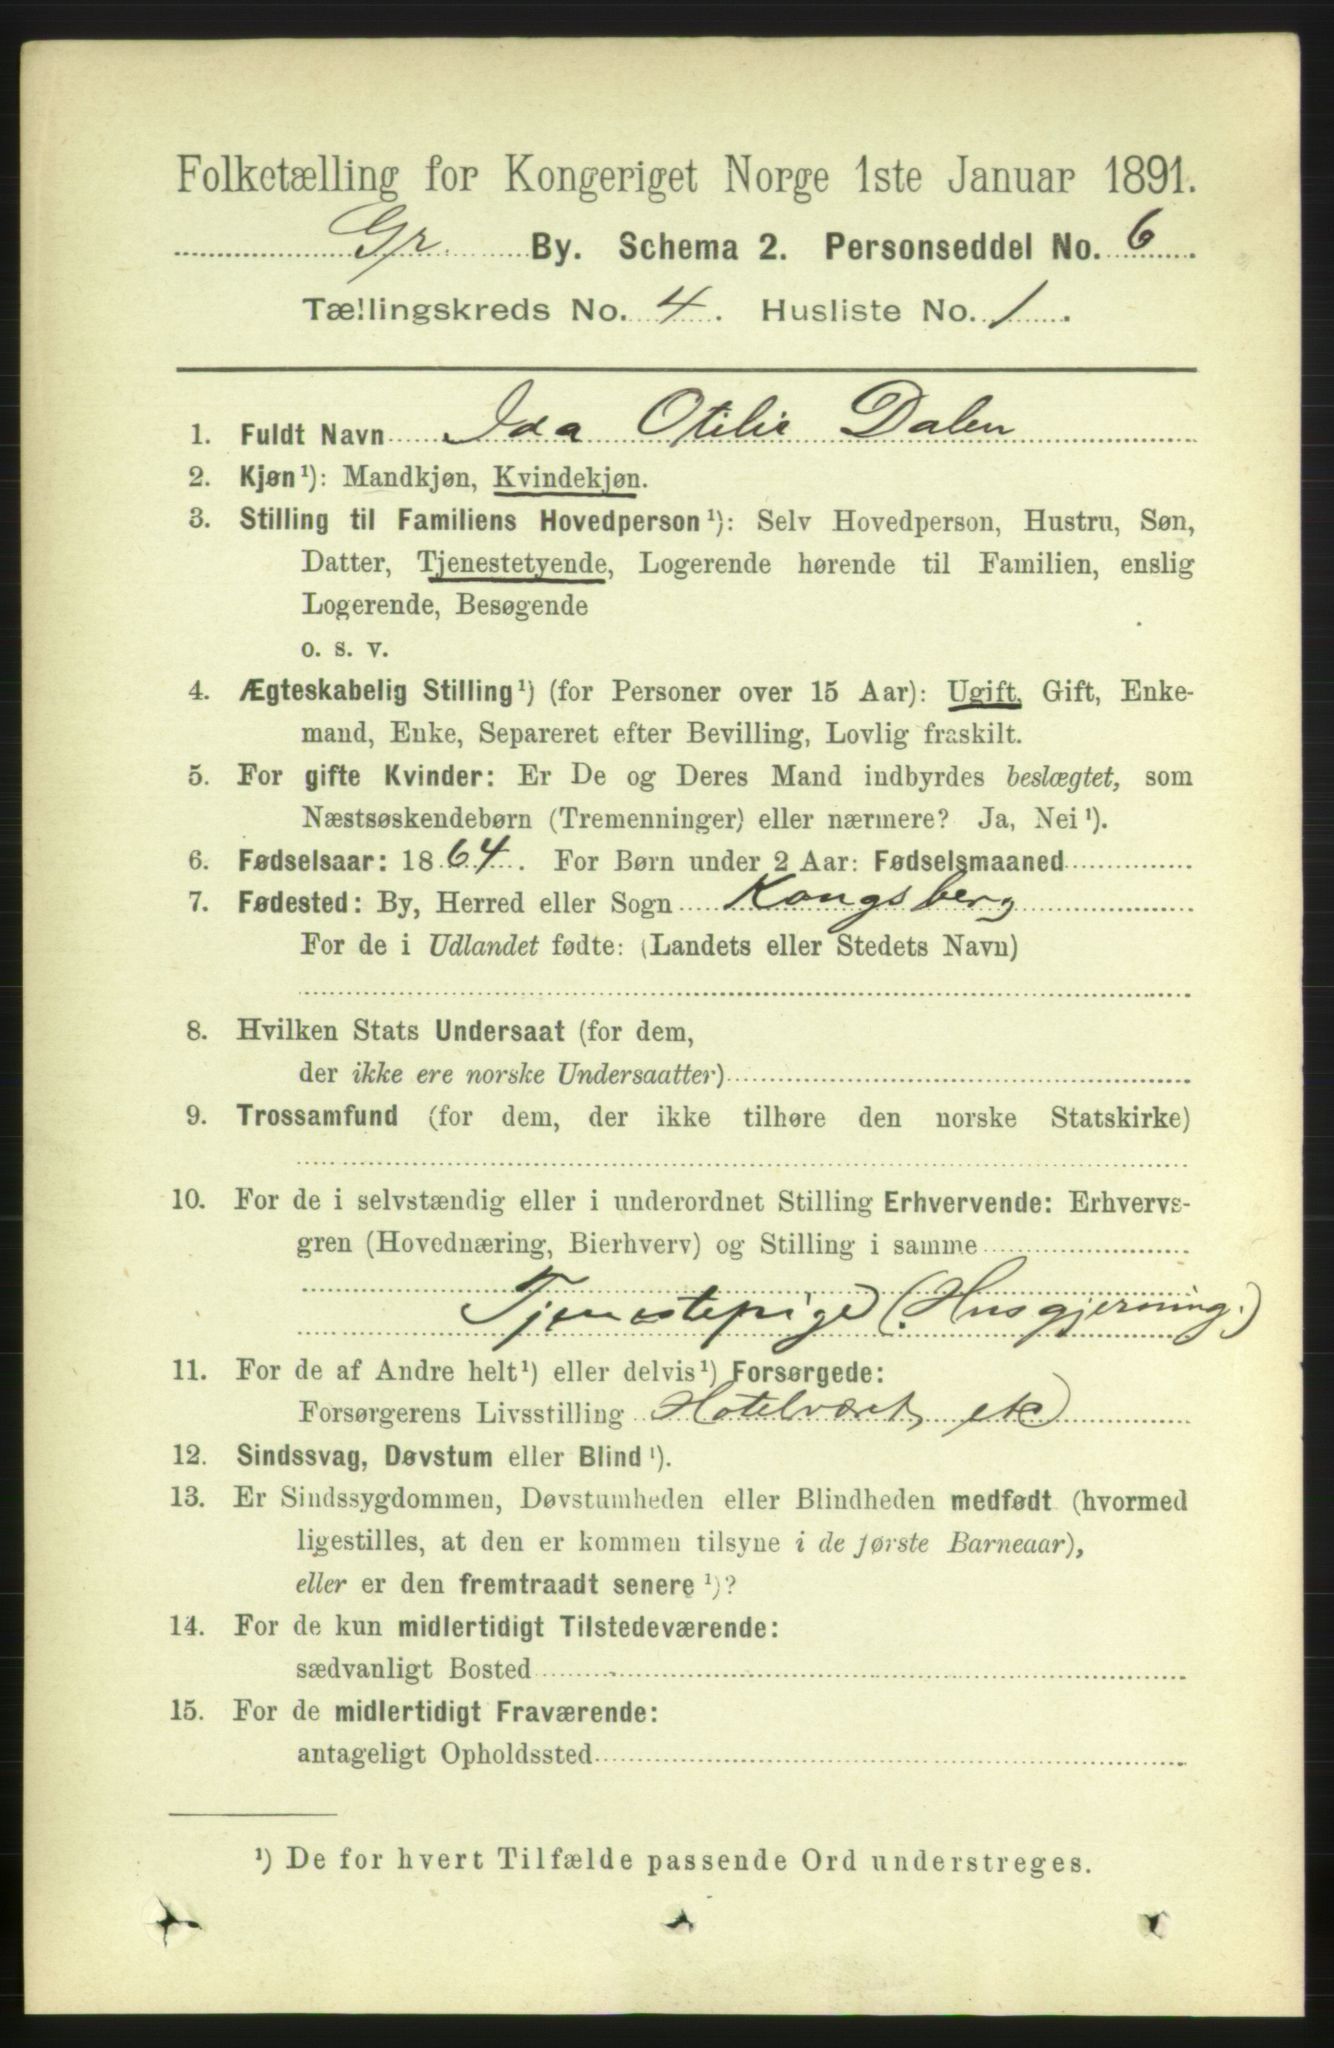 Folketælling for Kongeriget Norge 1ste Januar 1891.
Gr. By. Schema 2. Personseddel No. 6
Tællingskreds No. 4. Husliste No. 1.
1. Fuldt Navn Ida Otilie Dalen
2. Kjøn¹): Mandkjøn, Kvindekjøn.
3. Stilling til Familiens Hovedperson¹): Selv Hovedperson, Hustru, Søn,
Datter, Tjenestetyende, Logerende hørende til Familien, enslig
Logerende, Besøgende
o. s. v.
4. Ægteskabelig Stilling¹) (for Personer over 15 Aar): Ugift, Gift, Enke-
mand, Enke, Separeret efter Bevilling, Lovlig fraskilt.
5. For gifte Kvinder: Er De og Deres Mand indbyrdes beslægtet, som
Næstsøskendebørn (Tremenninger) eller nærmere? Ja, Nei¹).
6. Fødselsaar: 1864. For Børn under 2 Aar: Fødselsmaaned
7. Fødested: By, Herred eller Sogn Kongsberg
For de i Udlandet fødte: (Landets eller Stedets Navn)
8. Hvilken Stats Undersaat (for dem,
der ikke ere norske Undersaatter)
9. Trossamfund (for dem, der ikke tilhøre den norske Statskirke)
10. For de i selvstændig eller i underordnet Stilling Erhvervende: Erhvervs-
gren (Hovednæring, Bierhverv) og Stilling i samme
Tjenestepige (Husgjerning.)
11. For de af Andre helt¹) eller delvis¹) Forsørgede:
Forsørgerens Livsstilling Hotelvært etc
12. Sindssvag, Døvstum eller Blind¹).
13. Er Sindssygdommen, Døvstumheden eller Blindheden medfødt (hvormed
ligestilles, at den er kommen tilsyne i de første Barneaar),
eller er den fremtraadt senere¹)?
14. For de kun midlertidigt Tilstedeværende:
sædvanligt Bosted
15. For de midlertidigt Fraværende:
antageligt Opholdssted
¹) De for hvert Tilfælde passende Ord understreges.